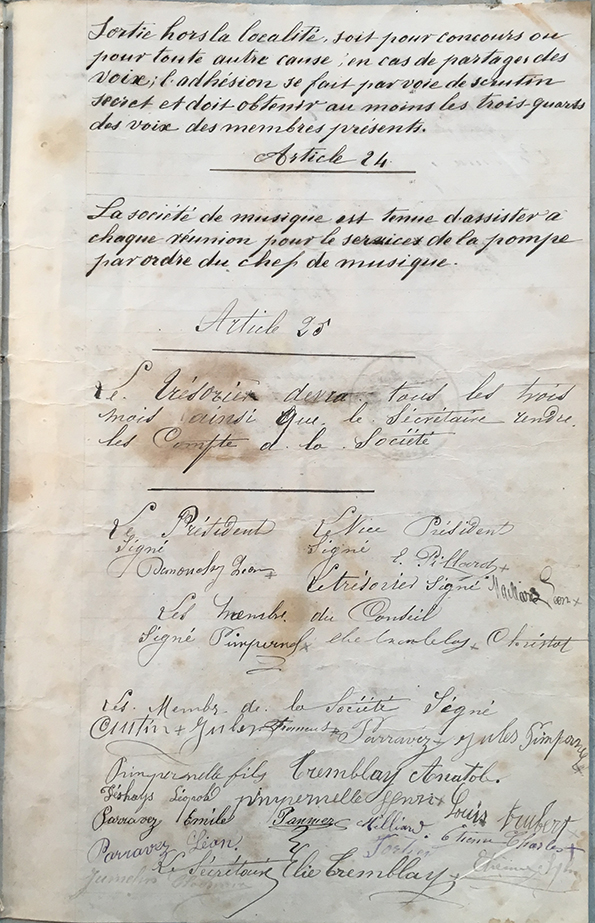 Sortie hors la localité, soit pour concours ou
pour toute autre cause; en cas de partage des
voix; l'adhésion se fait par voie de scrutin
secret et doit obtenir au moins les trois quarts
des voix des membres présents.
Article 24
La société de musique est tenue d'assister à
chaque réunion pour le services de la pompe
par ordre du chef de musique.
Article 25
Le trésorier devra tous les trois
mois ainsi que le Sécrétaire rendre
les Compte a la Société
Le Président Le Vice Président
Signé Signé E. Pillard
Le trésorier Signé Leon
Les membre du Conseil
Signé Pimpernel Elie tremblay Christot
Les Membre de la Société Signé
Cuutin Jules Parravez Jules Pimpernel
Pimpernelle fils tremblay Anatole
Déshays Léopold pimpernelle henri Louis trubert
Parravez Emile Paumier Hilliard Etienne Charles
Parravez Léon.
Le Sécrétaire Elie tremblay